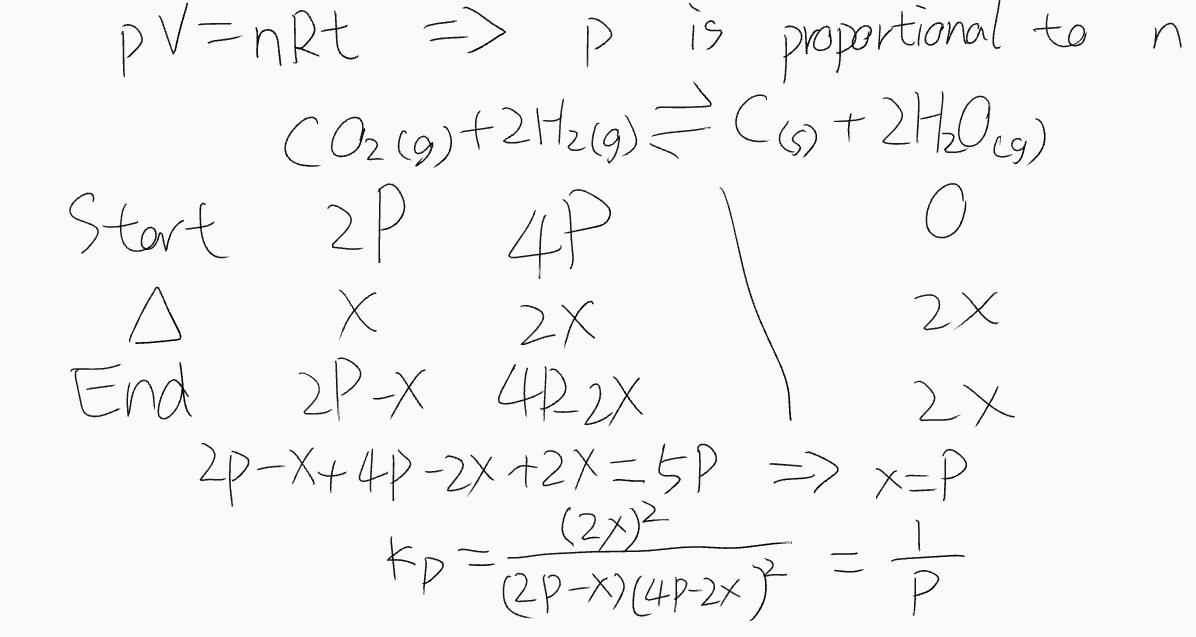 pV=nRt => p is proportional to n
CO₂(g)+2H₂(g)⇌C(s)+2H₂O(g)
Start 2P 4P \ 0
Δ x 2x 2x
End 2P-x 4P-2x 2x
2p-x+4p-2x+2x=5P => x=P
Kp=(2x)²/(2P-x)(4P-2x)²=1/P